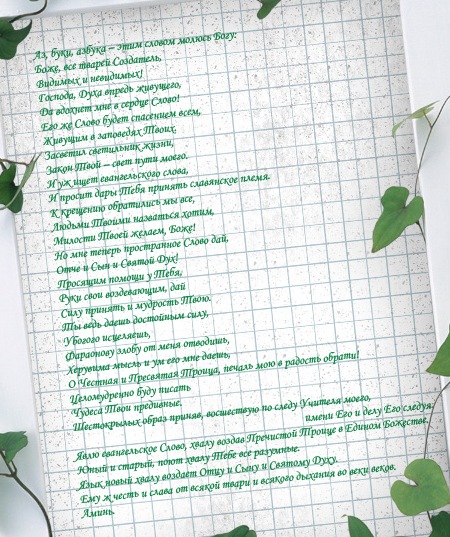 Аз, буки, азбука – этим словом молюсь Богу:
Боже, все тварей Создатель,
Видимых и невидимых!
Господа, Духа впредь живущего,
Да вдохнет мне в сердце Слово!
Его же Слово будет спасением всем,
Живущим в заповедях Твоих.
Засветил светильник жизни,
Закон Твой – свет пути моего.
И уж ищет евангельского слова,
И просит дары Тебя принять славянское племя.
К крещению обратились мы все,
Людьми Твоими назваться хотим,
Милости Твоей желаем, Боже!
Но мне теперь пространное Слово дай,
Отче и Сын и Святой Дух!
Просящим помощи у Тебя,
Руки свои воздевающим, дай
Силу принять и мудрость Твою.
Ты ведь даешь достойным силу,
Убогого исцеляешь,
Фараонову злобу от меня отводишь,
Херувима мысль и ум его мне даешь,
О Честная и Пресвятая Троица, печаль мою в радость обрати!
Целомудренно буду писать
Чудеса Твои предивные.
Шестокрылых образ приняв, восшествую по следу Учителя моего,
имени Его и делу Его следуя.
Явлю евангельское Слово, хвалу воздав Пречистой Троице в Едином Божестве.
Юный и старый, поют хвалу Тебе все разумные.
Язык новый хвалу воздает Отцу и Сыну и Святому Духу.
Ему ж честь и слава от всякой твари и всякого дыхания во веки веков.
Аминь.